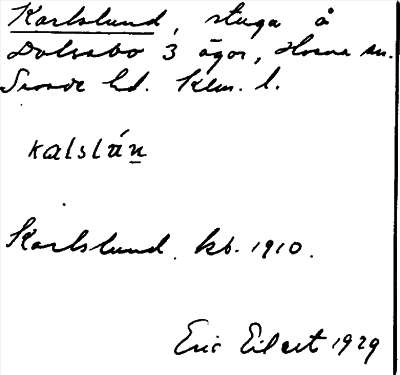 Karlslund, stuga å
Dolvabo 3 ägor, Hosna sn.
hd. Klm. l.
kalslán
Karlslund. kb. 1910.
Eric Eilert 1929